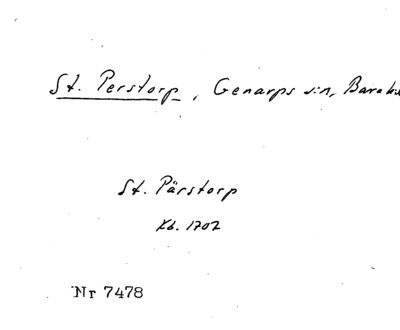 St. Perstorp, Genarps sn,
St. Pärstorp
Kb. 1702
Nr 7478